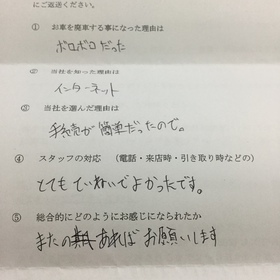 にご返送ください。
① お車を廃車する事になった理由は
ボロボロだった
② 当社を知った理由は
インターネット
③ 当社を選んだ理由は
手続きが簡単だったので。
④ スタッフの対応 (電話・来店時・引き取り時などの)
とてもていねいでよかったです。
⑤ 総合的にどのようにお感じになられたか
またあればお願いします